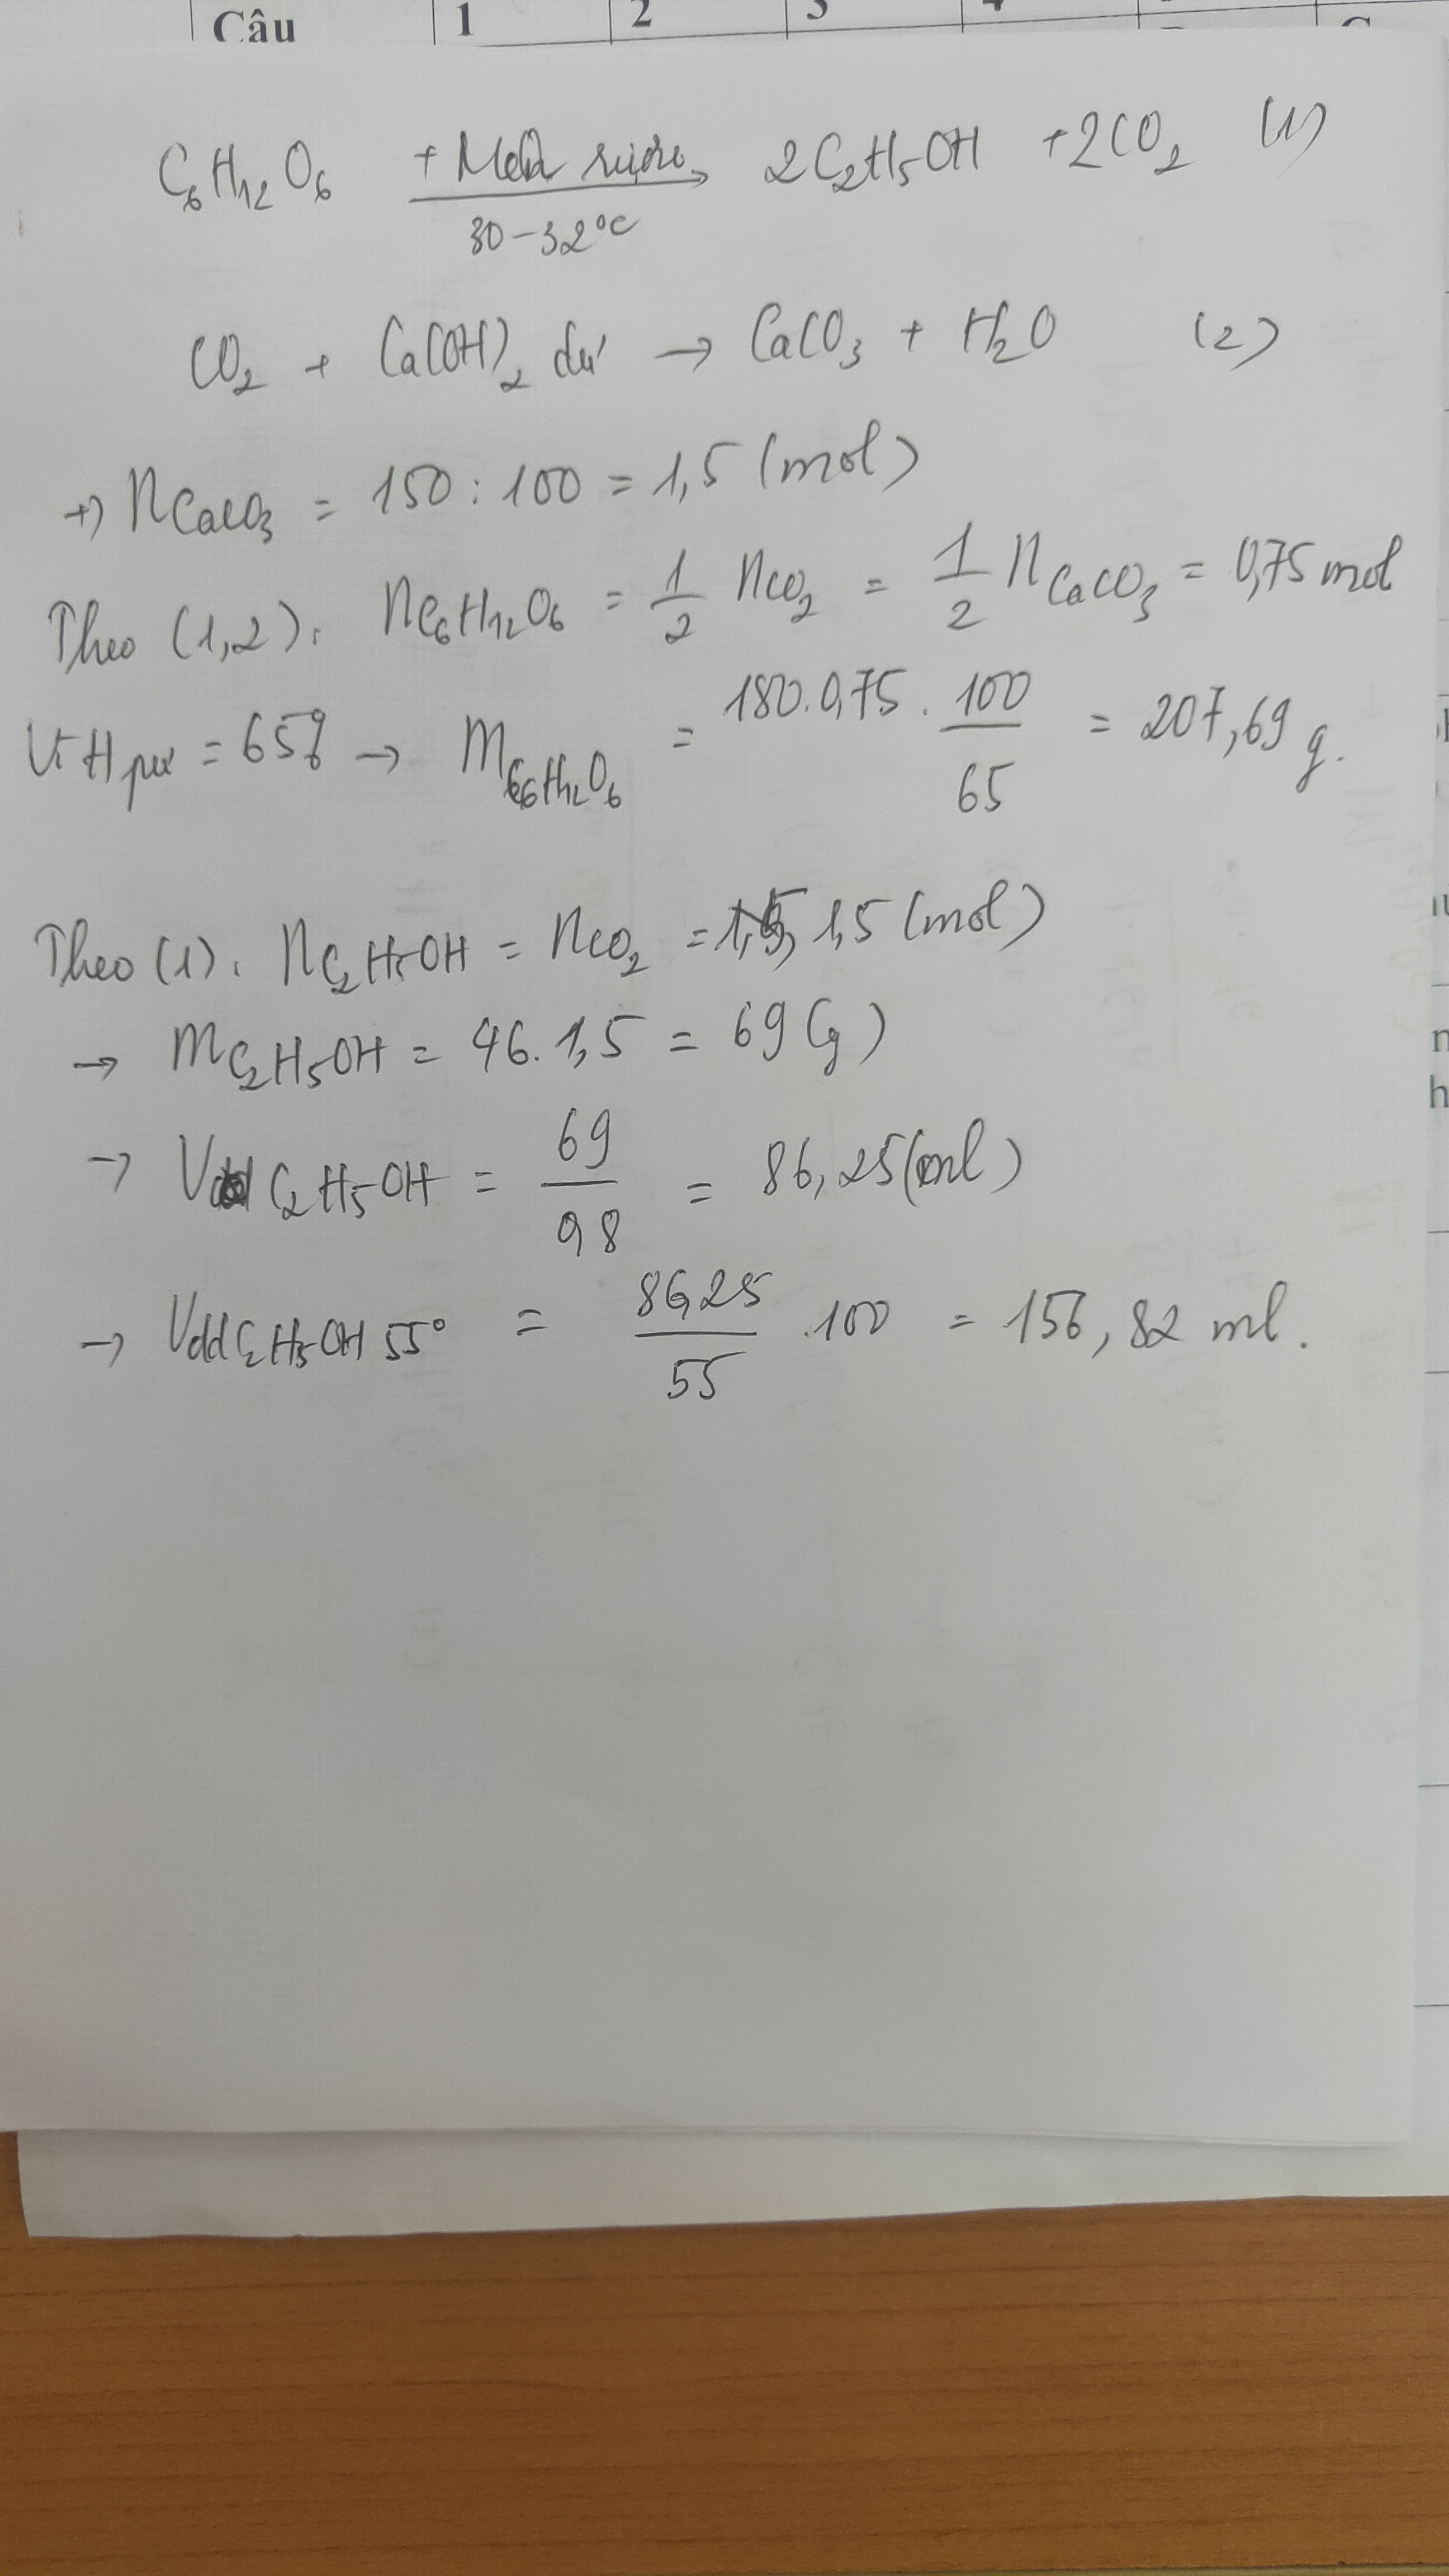 Câu 1 2 3 4
C₆H₁₂O₆ + Men rượu 30-32°C → 2C₂H₅OH + 2CO₂ (1)
CO₂ + Ca(OH)₂ dư → CaCO₃ + H₂O (2)
+) nCaCO₃ = 150 : 100 = 1,5 (mol)
Theo (1,2): nC₆H₁₂O₆ = 1/2 nCO₂ = 1/2 nCaCO₃ = 0,75 mol
Vì Hpư = 65% → mC₆H₁₂O₆ = 180.0,75 . 100/65 = 207,69 g.
Theo (1): nC₂H₅OH = nCO₂ = 1,5 (mol)
→ mC₂H₅OH = 46.1,5 = 69 (g)
→ V C₂H₅OH = 69/0,8 = 86,25 (ml)
→ Vdd C₂H₅OH 55° = 86,25/55 .100 = 156,82 ml.